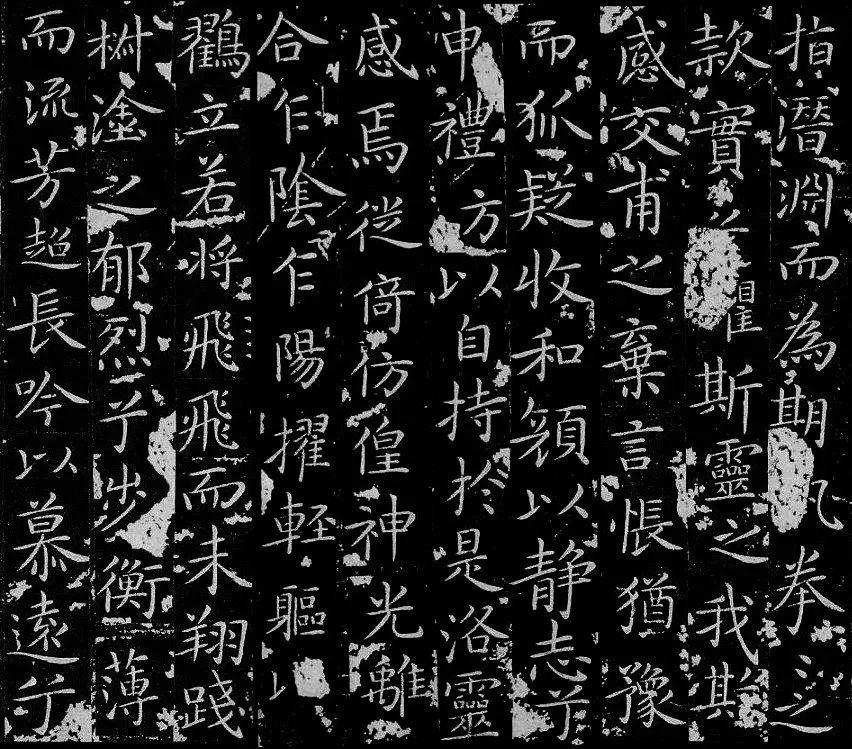 指潛淵而為期執拳〻之
款實兮懼斯靈之我欺
感交甫之棄言悵猶豫
而狐疑收和顏以静志兮
申禮方以自持於是洛靈
感焉徙倚仿偟神光離
合乍陰乍陽擢軽軀以
鸖立若将飛飛而未翔踐
椒塗之郁烈兮步衡薄
而流芳超長吟以慕遠兮